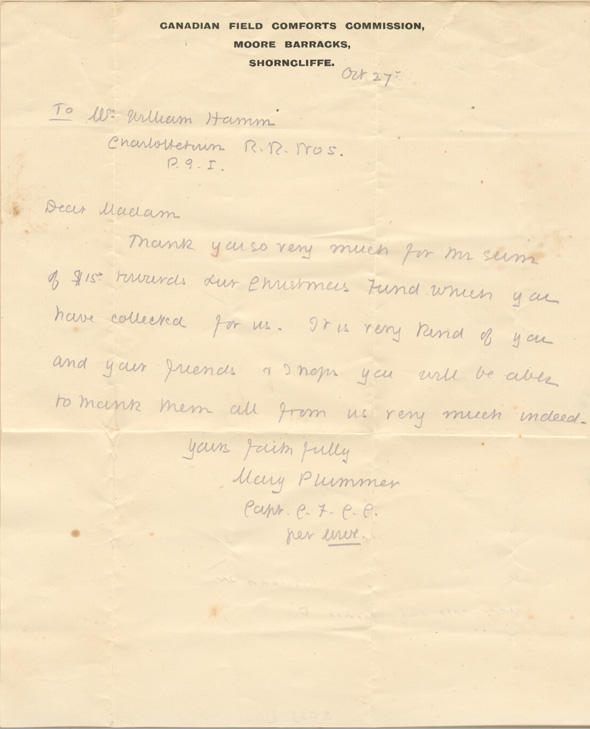 CANADIAN FIELD COMFORTS COMMISSION,
MOORE BARRACKS,
SHORNCLIFFE.
Oct 27
To Mrs William Hamm
Charlottetown R.R. No 5.
P.E.I.
Dear Madam
Thank you so very much for the sum
of $15 towards our Christmas Fund which you
have collected for us. It is very kind of you
and your friends & I hope you will be able
to thank them all from us very much indeed.
yours faithfully
Mary Plummer
Capt. C. F. C. C.
per